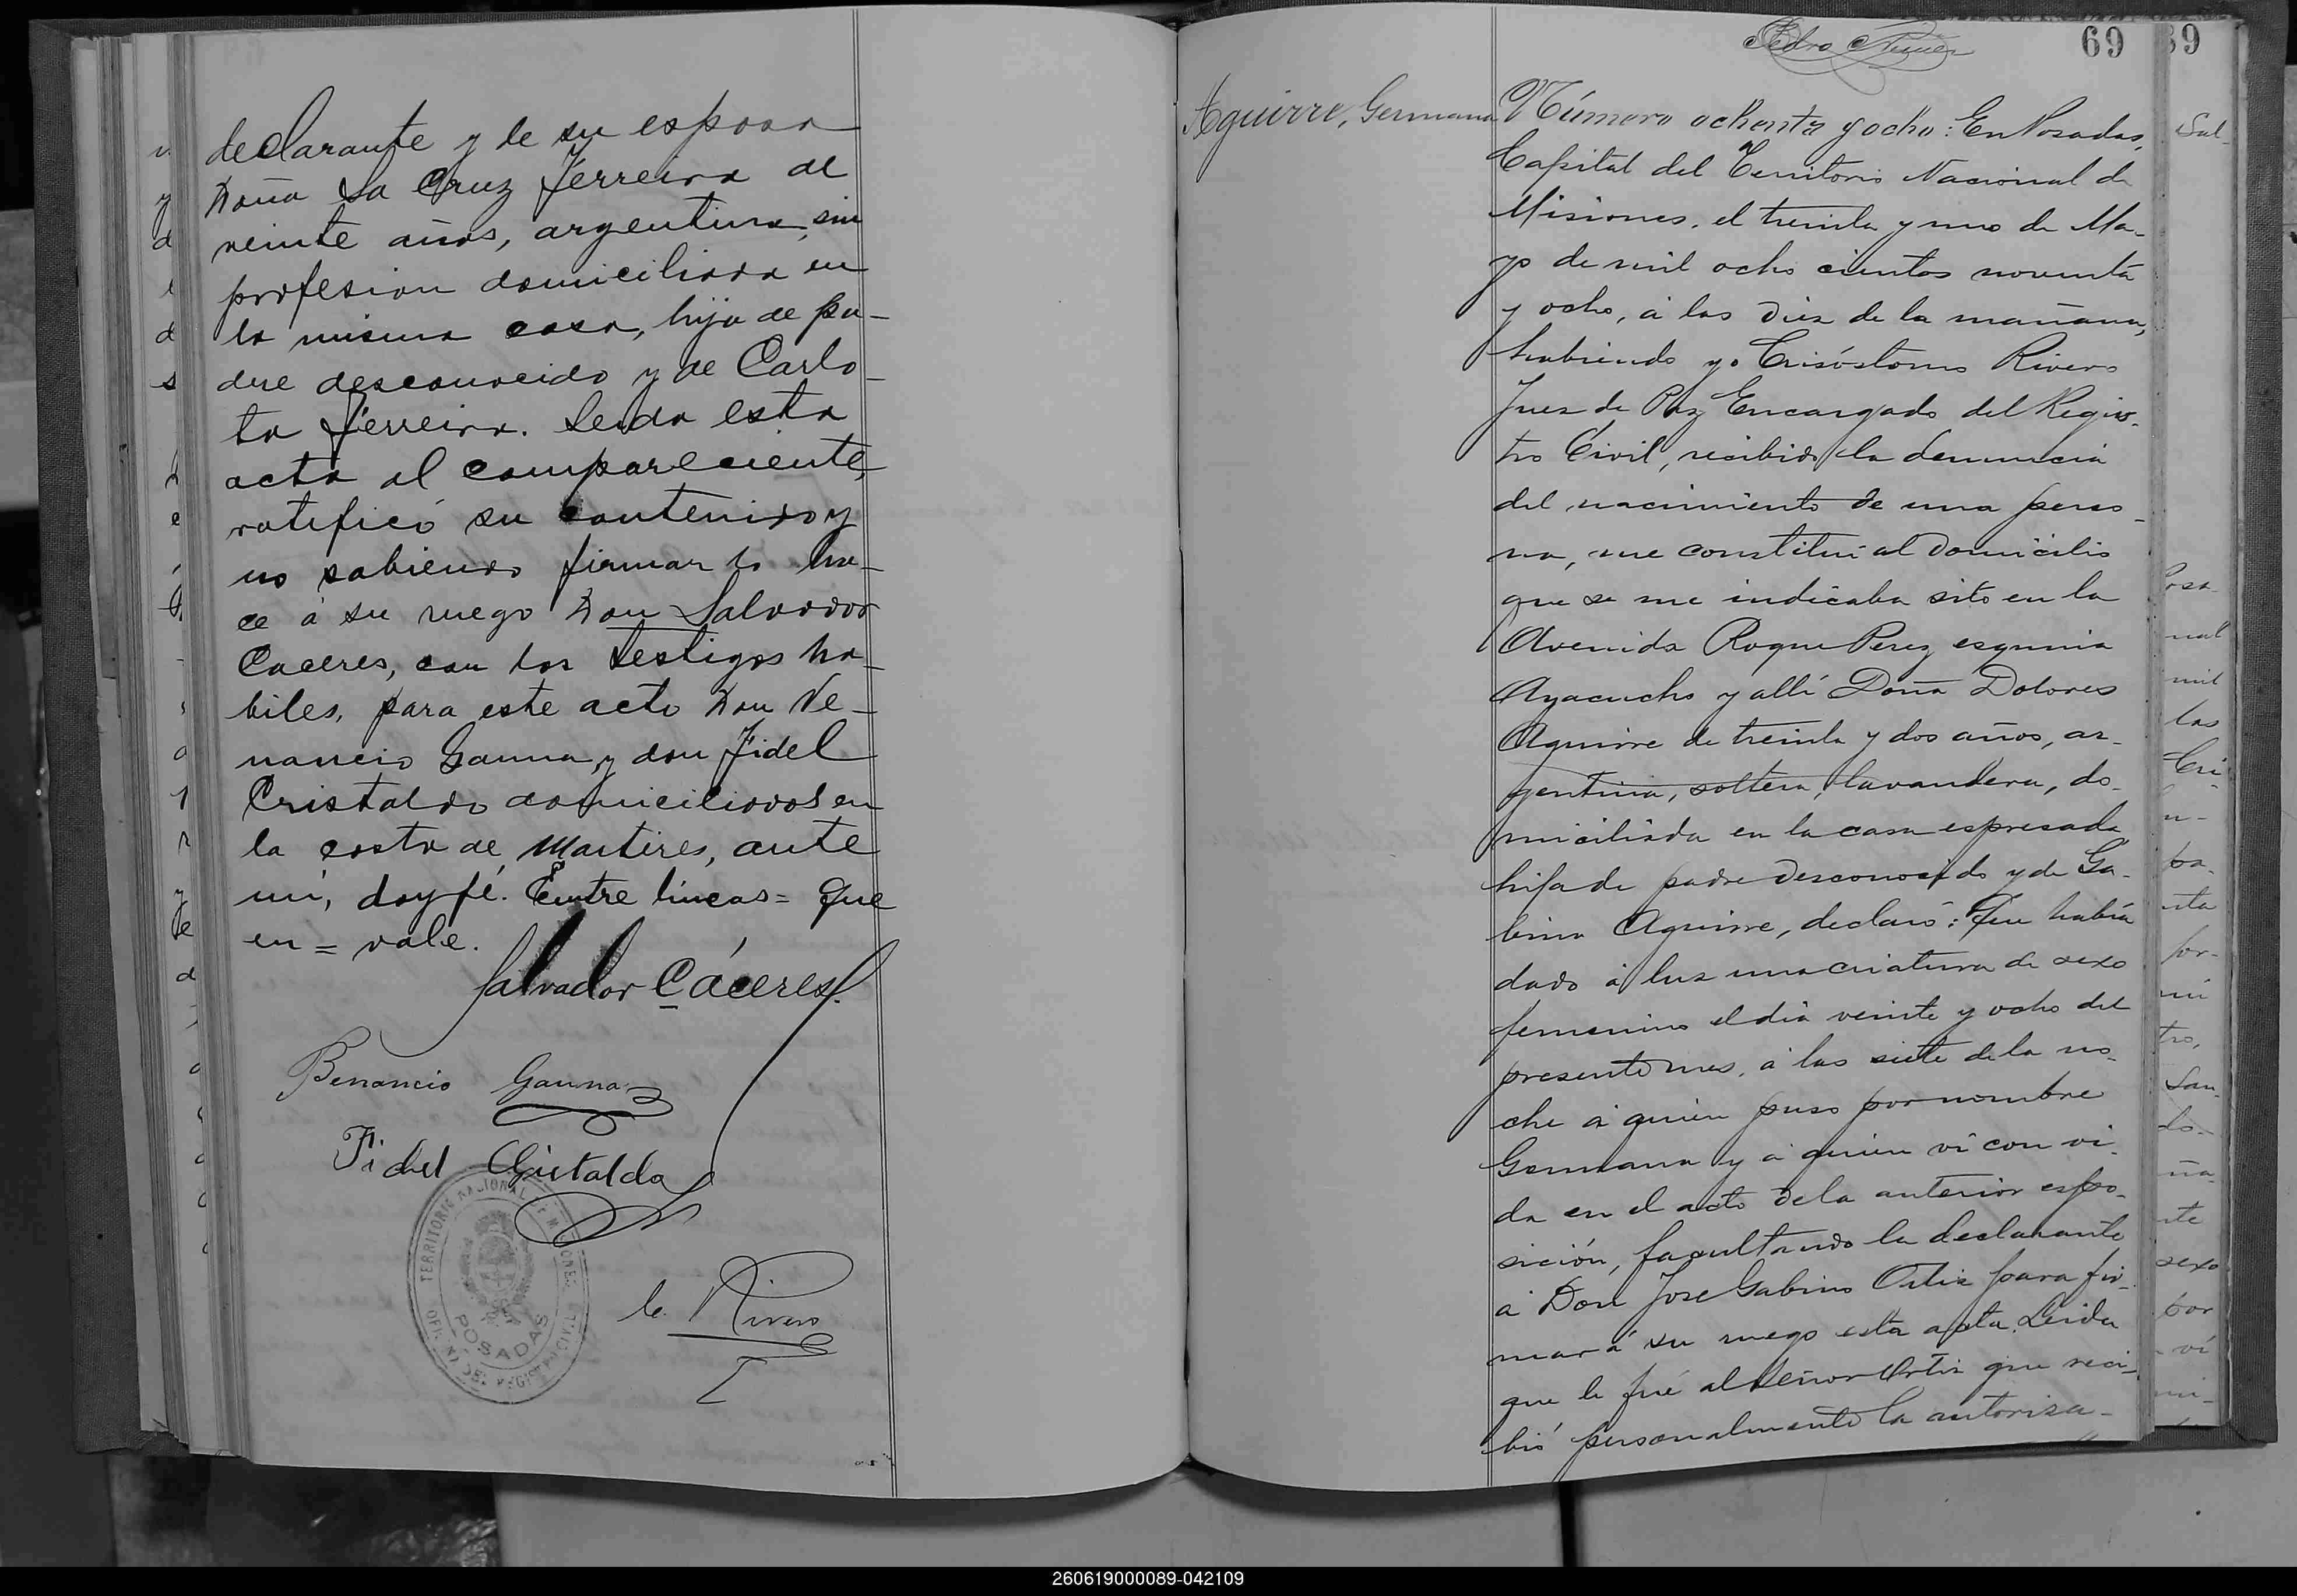 declarante y de su esposa
Doña La Cruz Ferreira de
veinte años, argentina, sin
profesion domiciliada en
la misma casa, hija de pa-
dre desconocido y de Carlo-
ta Ferreira. Leida esta
acta al compareciente,
ratificó su contenido y
no sabiendo firmar lo ha-
ce á su ruego Don Salvador
Caceres, con los testigos ha-
biles, para este acto Don Ve-
nancio Gauna, y don Fidel
Cristaldo domiciliados en
la costa de Martires, ante
mi, doy fé. Entre lineas = que
en = vale.
Salvador Cáceres.
Benancio Gauna
Fidel Cristaldo
TERRITORIO NACIONAL DE MISIONES
POSADAS
OFICINA DEL REGISTRO CIVIL
C. Rivero
Pedro
69
39
Aguirre, Germana
Número ochenta y ocho: En Posadas,
Capital del Territorio Nacional de
Misiones, el treinta y uno de Ma-
yo de mil ocho cientos noventa
y ocho, á las diez de la mañana,
habiendo yo Crisóstomo Rivero
Juez de Paz Encargado del Regis-
tro Civil, recibido la denuncia
del nacimiento de una perso-
na, me constitui al domicilio
que se me indicaba sito en la
Avenida Roque Perez esquina
Ayacucho y allí Doña Dolores
Aguirre de treinta y dos años, ar-
gentina, soltera, lavandera, do-
miciliada en la casa espresada
hija de padre desconocido y de Ga-
bina Aguirre, declaró: Que habia
dado á luz una criatura de sexo
femenino el dia veinte y ocho del
presente mes, á las siete de la no-
che á quien puso por nombre
Germana y á quien vi con vi-
da en el acto de la anterior espo-
sición, facultando la declarante
á Don Jose Gabino Ortiz para fir-
mar á su ruego esta acta. Leida
que le fué al Señor Ortiz que reci-
bió personalmente la autoriza-
260619000089-042109